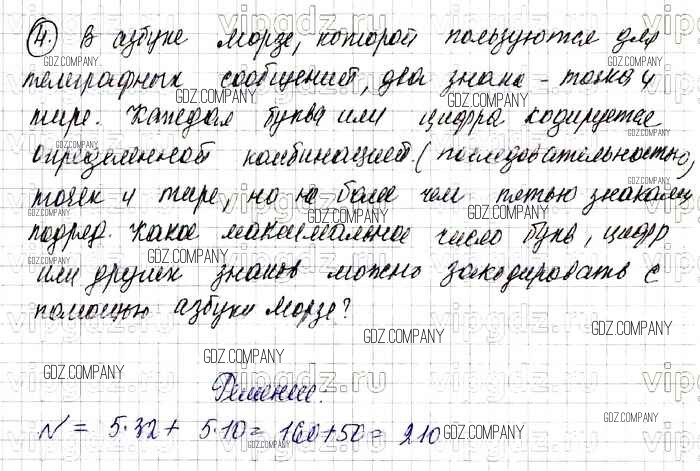 4. В азбуке Морзе, которой пользуются для
телеграфных сообщений, два знака - точка и
тире. Каждая буква или цифра кодируется
определенной комбинацией (последовательностью)
точек и тире, но не более чем пятью знаками
подряд. Какое максимальное число букв, цифр
или других знаков можно закодировать с
помощью азбуки Морзе?
Решение.
N = 5·32 + 5·10 = 160+50 = 210
vipgdz.ru
GDZ.COMPANY